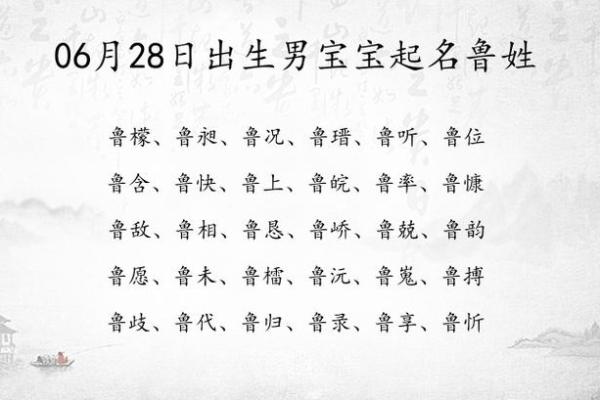 06月28日出生男宝宝起名鲁姓
鲁檬、鲁昶、鲁况、鲁瑨、鲁听、鲁位
鲁含、鲁快、鲁上、鲁皖、鲁率、鲁慷
鲁敌、鲁相、鲁恳、鲁峤、鲁兢、鲁韵
鲁愿、鲁未、鲁檑、鲁沅、鲁嵬、鲁搏
鲁歧、鲁代、鲁归、鲁录、鲁享、鲁忻